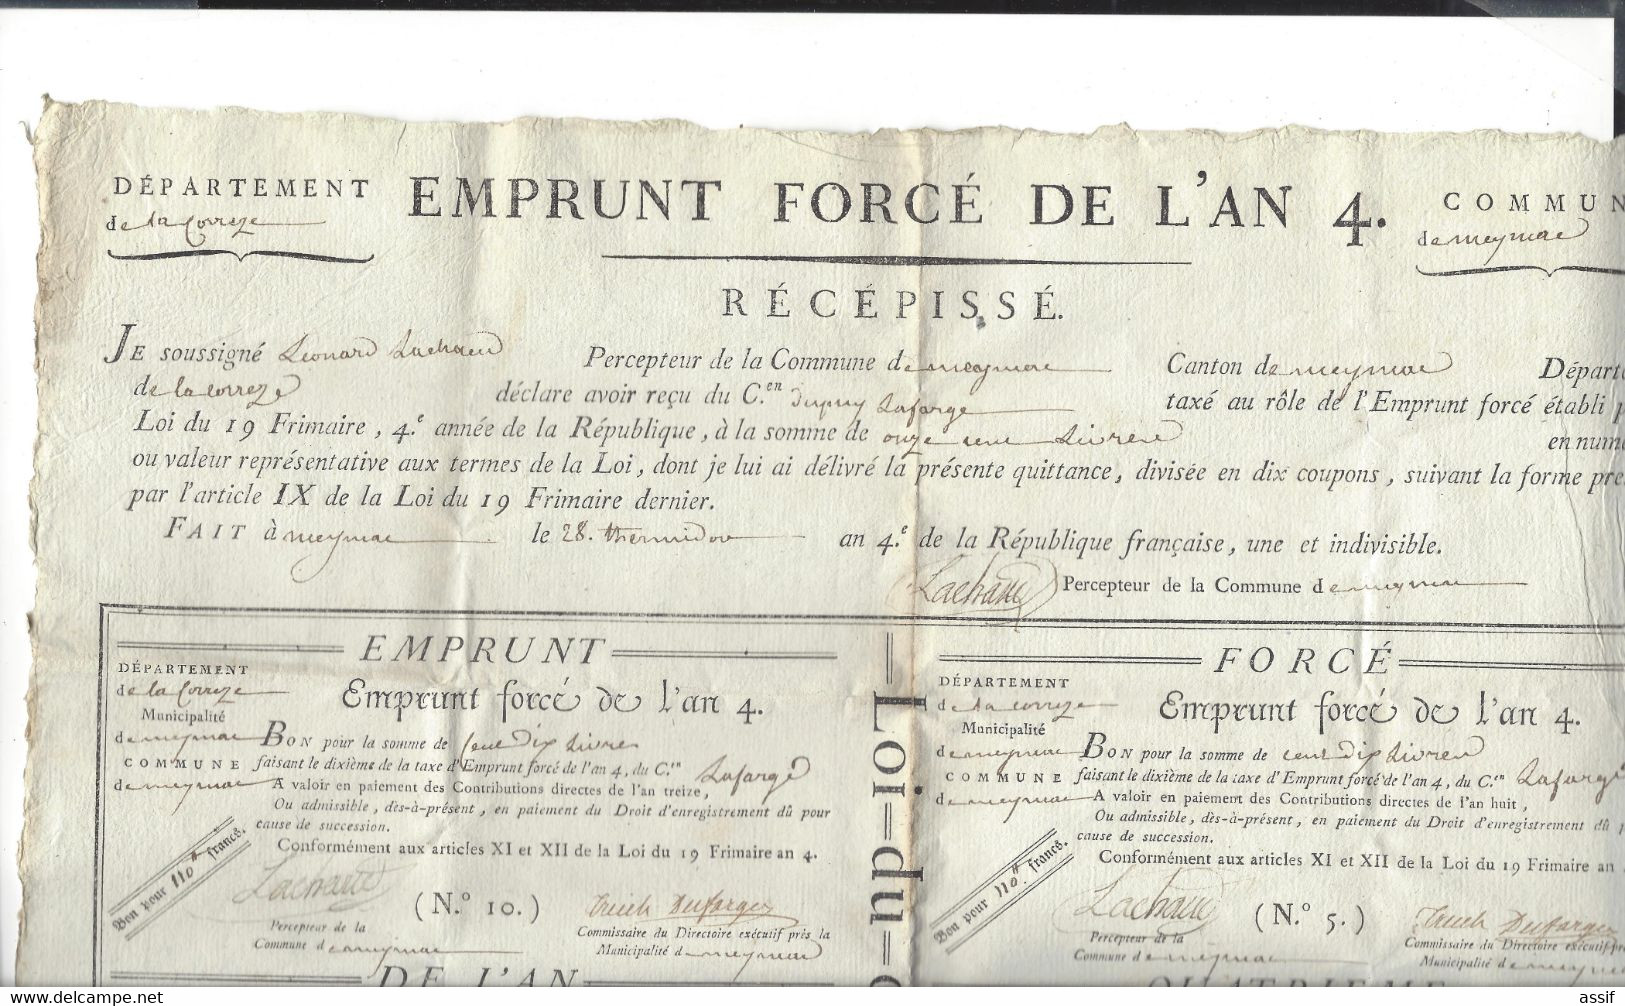 DÉPARTEMENT
de la Correze
EMPRUNT FORCÉ DE L'AN 4.
COMMUN
de meymac
RÉCÉPISSÉ.
JE soussigné Léonard Lachaud Percepteur de la Commune de meymac Canton de meymac Départ
de la correze déclare avoir reçu du C.en Dupuy Lafarge taxé au rôle de l'Emprunt forcé établi p
Loi du 19 Frimaire, 4.e année de la République, à la somme de onze cent Livres en numé
ou valeur représentative aux termes de la Loi, dont je lui ai délivré la présente quittance, divisée en dix coupons, suivant la forme pre
par l'article IX de la Loi du 19 Frimaire dernier.
FAIT à meymac le 28. thermidor an 4.e de la République française, une et indivisible.
Lachaud Percepteur de la Commune de meymac
EMPRUNT
DÉPARTEMENT
de la Correze
Municipalité
de meymac
COMMUNE
de meymac
Emprunt forcé de l'an 4.
BON pour la somme de Cent Dix Livres
faisant le dixième de la taxe d'Emprunt forcé de l'an 4, du C.en Lafarge
A valoir en paiement des Contributions directes de l'an treize,
Ou admissible, dès-à-présent, en paiement du Droit d'enregistrement dû pour
cause de succession.
Conformément aux articles XI et XII de la Loi du 19 Frimaire an 4.
Bon pour 110 francs.
Lachaud
(N.o 10.)
Percepteur de la
Commune de meymac
Commissaire du Directoire exécutif près la
Municipalité de meymac
DE L'AN
Loi-du-
FORCÉ
DÉPARTEMENT
de la correze
Municipalité
de meymac
COMMUNE
de meymac
Emprunt forcé de l'an 4.
BON pour la somme de cent dix Livres
faisant le dixième de la taxe d'Emprunt forcé de l'an 4, du C.en Lafarge
A valoir en paiement des Contributions directes de l'an huit,
Ou admissible, dès-à-présent, en paiement du Droit d'enregistrement dû p
cause de succession.
Conformément aux articles XI et XII de la Loi du 19 Frimaire an
Bon pour 110 francs.
Lachaud
(N.o 5.)
Percepteur de la
Commune de meymac
Commissaire du Directoire exécutif près
Municipalité de meymac
QUATRIEME
assif